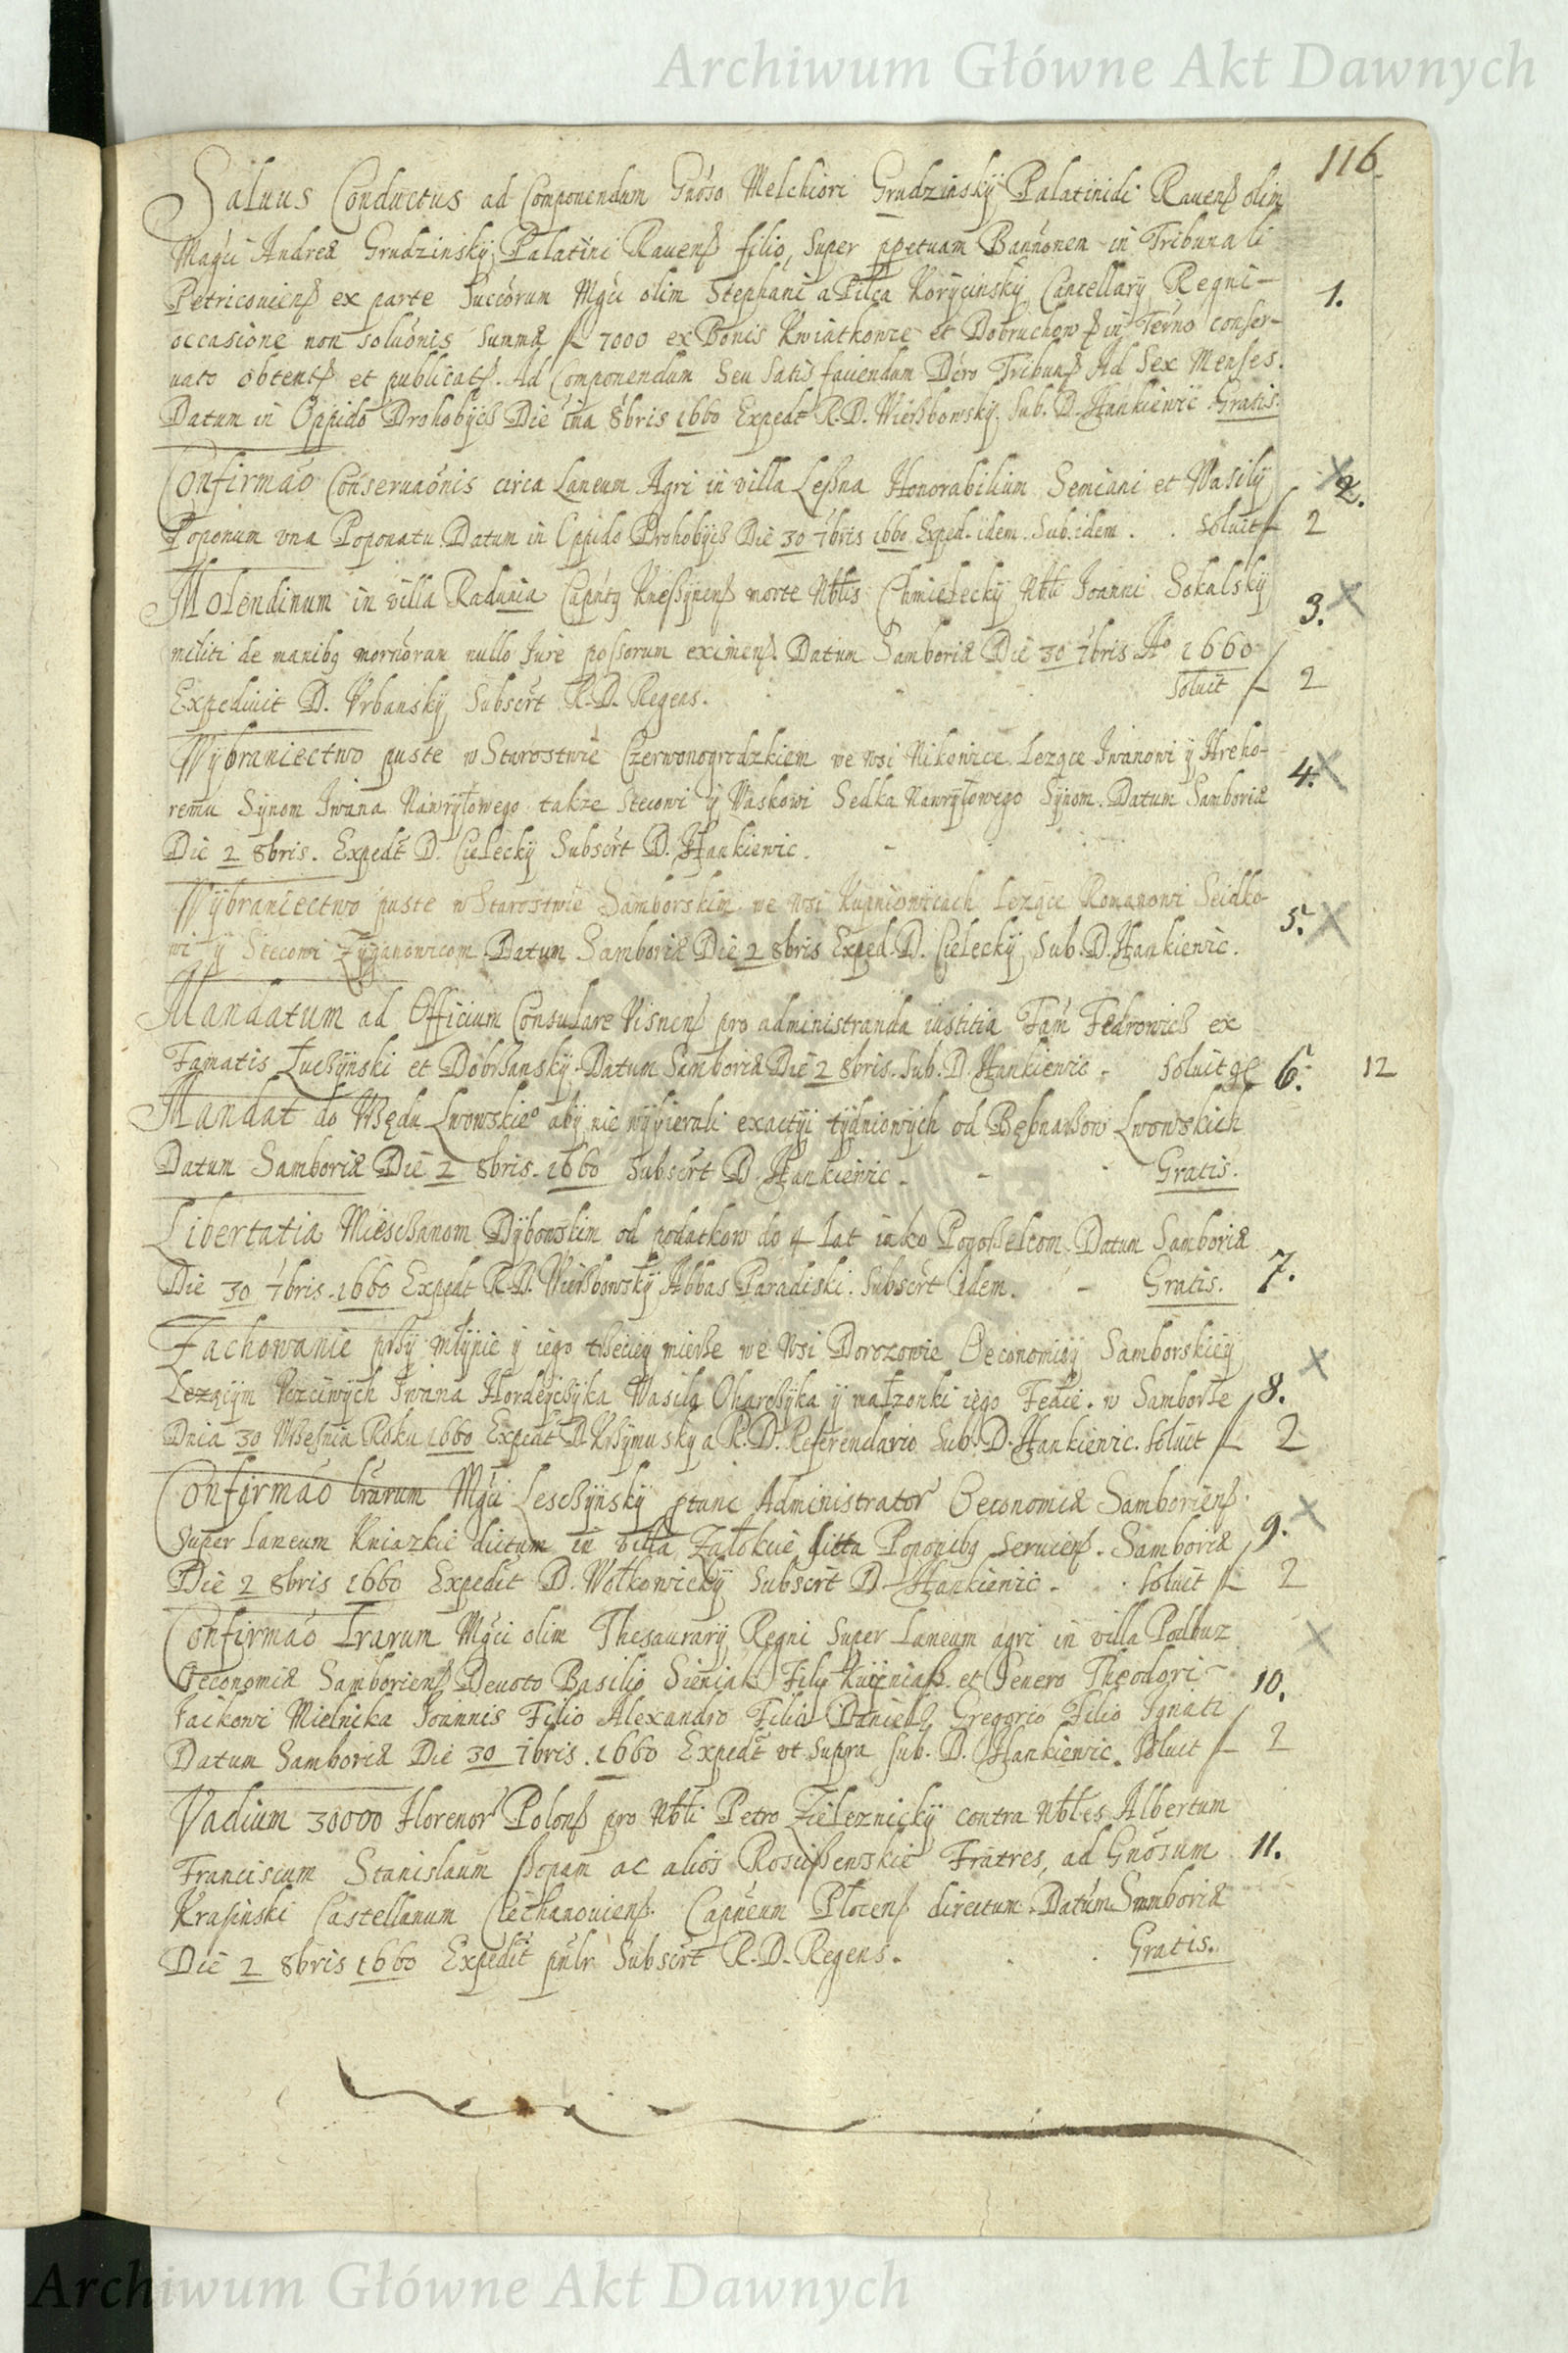 Archiwum Główne Akt Dawnych
116.
Saluus Conductus ad Componendum Gnoso Melchiori Grudzinskÿ Palatinidi Rauenß olim
Magci Andreæ Grudzinskÿ Palatini Rauenß filio, super ppetuam Bannonem in Tribunali
Petricouienß ex parte Succorum Mgci olim Stephani a Pilca Korÿcinskÿ Cancellarÿ Regni 1.
occasione non soluonis summæ fl 7000 ex Bonis Kwiatkowice et Dobruchow in Terno conser-
uato obtentß et publicatß. Ad Componendum Seu Satis faciendum Dcro Tribunß Ad Sex Menses.
Datum in Oppido Drohobÿcß Die ima 8bris 1660 Expedt R.D. Wierßbowskÿ. Sub. D. Hankiewic Gratis.
Confirmao Conseruaonis circa Laneum Agri in villa Leßna Honorabilium Semiani et Wasilÿ 2.
Poponum vna Poponatu. Datum in Oppido Drohobÿcß Die 30 7bris 1660 Exped. idem. Sub. idem. Soluit fl 2
Molendinum in villa Radunia Captg Kneßÿnenß morte Nblis Chmieleckÿ Nbli Ioanni Sokalskÿ 3.
militi de manibg mortuorum nullo Iure possorum eximenß. Datum Samboriæ Die 30 7bris Ao 1660
Expediuit D. Vrbanskÿ Subscrt R.D. Regens. Soluit fl 2
Wÿbraniectwo puste w Starostwie Czerwonogrodzkiem we wsi Nikowice Lezące Iwanowi ÿ Hreho- 4.
remu Sÿnom Iwana Nawrÿłowego takze Stecowi ÿ Waskowi Sedka Nawrÿłowego Sÿnom. Datum Samboriæ
Die 2 8bris. Expedt D. Cieleckÿ Subscrt D. Hankiewic.
Wÿbraniectwo puste w Starostwie Samborskim we wsi Kupnowicach Lezące Romanowi Seidko- 5.
wi ÿ Stecowi Zÿganowicom Datum Samboriæ Die 2 8bris Exped. D. Cieleckÿ Sub. D. Hankiewic.
Mandatum ad Officium Consulare Visnenß pro administranda iustitia Fam Fedrowicß ex
Famatis Łucßÿnski et Dobrßanskÿ. Datum Samboriæ Die 2 8bris. Sub. D. Hankiewic. Soluit 6. 12
Mandat do Vßędu Lwowskieo abÿ nie wÿbierali exactÿi tÿdniowÿch od Bębnaßow Lwowskich
Datum Samboriæ Die 2 8bris. 1660 Subscrt D. Hankiewic. Gratis.
Libertatia Miescßanom Dÿbowskim od podatkow do 4 Lat iako Pogoßelcom. Datum Samboriæ
Die 30 7bris. 1660 Expedt R.D. Wierßbowskÿ Abbas Paradiski. Subscrt idem. Gratis. 7.
Zachowanie prßÿ młÿnie ÿ iego trßeciej mierße we wsi Dorozowie Oeconomiÿ Samborskiey
Lezącÿm Vczciwÿch Iwana Hordeÿcßÿka Wasila Okarcßÿka ÿ małzonki iego Fedie. w Samborße 8.
Dnia 30 Wrßesnia Roku 1660 Expedt D. Krßÿmuskÿ a R.D. Referendario Sub. D. Hankiewic. Soluit fl 2
Confirmao Lrarum Mgci Lescßÿnskÿ ptunc Administrator Oeconomiæ Samborienß.
Super Laneum Kniazkie dictum in villa Załokcie sitta Poponibg seruienß. Samboriæ 9.
Die 2 8bris 1660 Expedit D. Wołkowickÿ Subscrt D. Hankiewic. Soluit fl 2
Confirmao Lrarum Mgci olim Thesaurarÿ Regni Super Laneum agri in villa Podbuz
Oeconomiæ Samborienß Deuoto Basilio Sieniak Filÿ et Genero Theodori 10.
Iackowi Mielnika Ioannis Filio Alexandro Filio Danielß Gregorio Filio Ignati
Datum Samboriæ Die 30 7bris. 1660 Expedt vt supra Sub. D. Hankiewic. Soluit fl 2
Vadium 30000 Florenor Polonß pro Nbli Petro Zieleznickÿ contra Nbles Albertum
Franciscum Stanislaum ac alios Rosÿßewskie Fratres, ad Gnosum 11.
Krasinski Castellanum Ciechanouienß. Capneum Plocenß directum. Datum Samboriæ
Die 2 8bris 1660 Expedit pnlr Subscrt R.D. Regens. Gratis.
Archiwum Główne Akt Dawnych